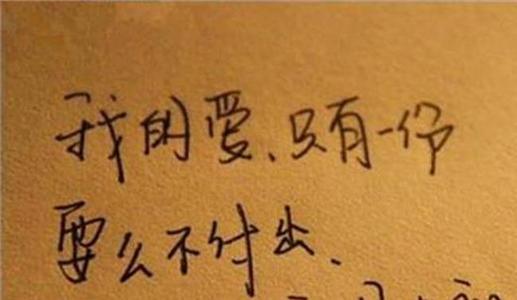 我的爱、只有一份
要么不付出、